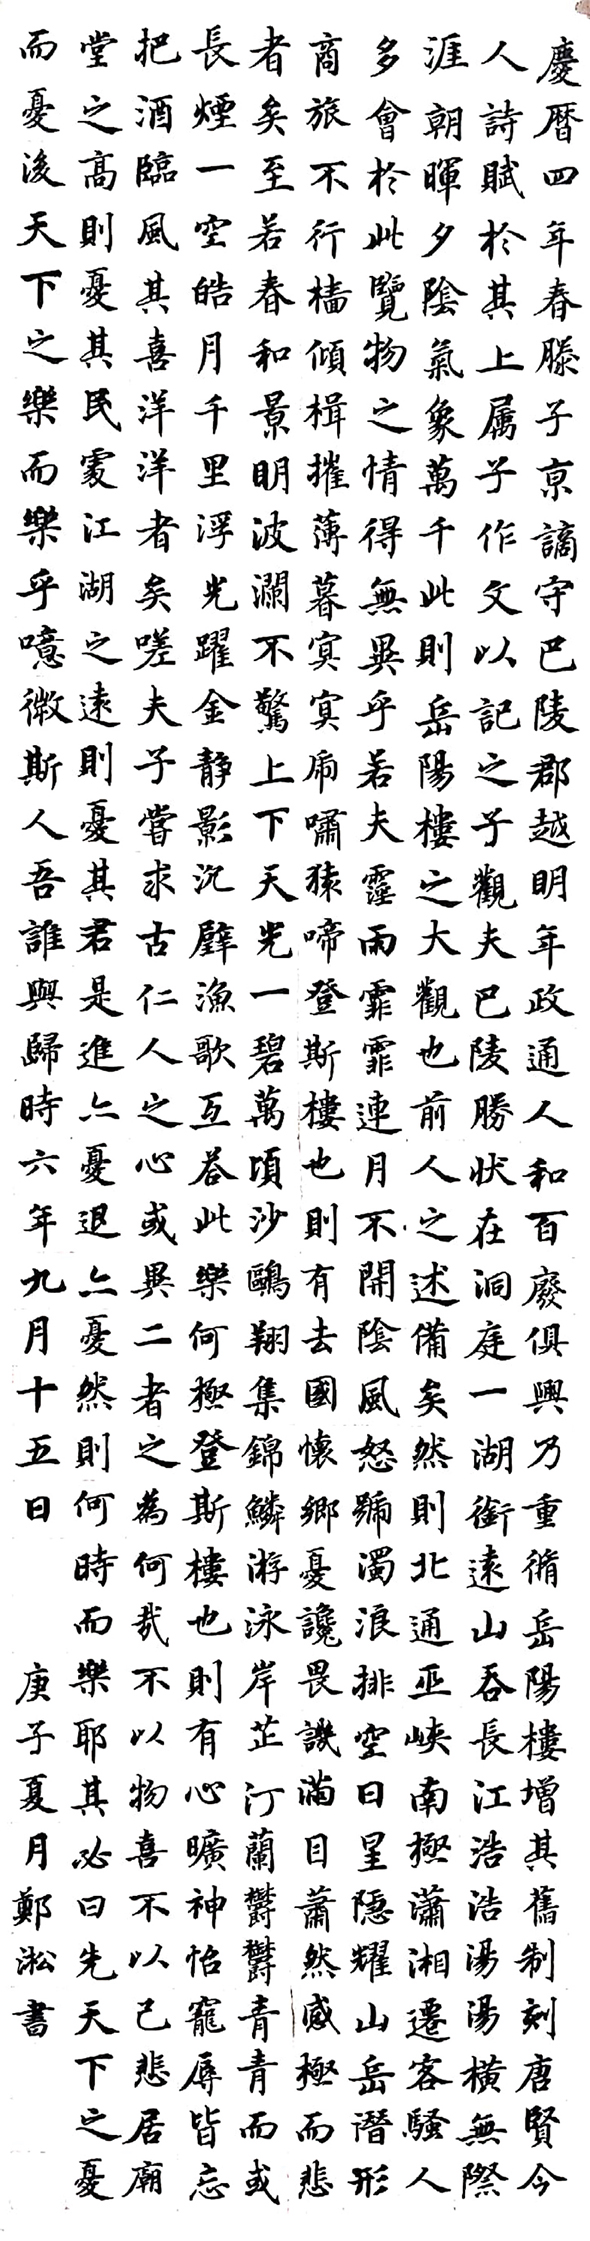 慶曆四年春滕子京謫守巴陵郡越明年政通人和百廢俱興乃重脩岳陽樓增其舊制刻唐賢今
人詩賦於其上属予作文以記之予觀夫巴陵勝狀在洞庭一湖銜遠山吞長江浩浩湯湯橫無際
涯朝暉夕陰氣象萬千此則岳陽樓之大觀也前人之述備矣然則北通巫峽南極瀟湘遷客騷人
多會於此覽物之情得無異乎若夫霪雨霏霏連月不開陰風怒號濁浪排空日星隱耀山岳潛形
商旅不行檣傾楫摧薄暮冥冥虎嘯猿啼登斯樓也則有去國懷鄉憂讒畏譏滿目蕭然感極而悲
者矣至若春和景明波瀾不驚上下天光一碧萬頃沙鷗翔集錦鱗游泳岸芷汀蘭鬱鬱青青而或
長煙一空皓月千里浮光躍金靜影沉璧漁歌互答此樂何極登斯樓也則有心曠神怡寵辱皆忘
把酒臨風其喜洋洋者矣嗟夫予嘗求古仁人之心或異二者之為何哉不以物喜不以己悲居廟
堂之高則憂其民處江湖之遠則憂其君是進亦憂退亦憂然則何時而樂耶其必曰先天下之憂
而憂後天下之樂而樂乎噫微斯人吾誰與歸時六年九月十五日 庚子夏月鄭淞書